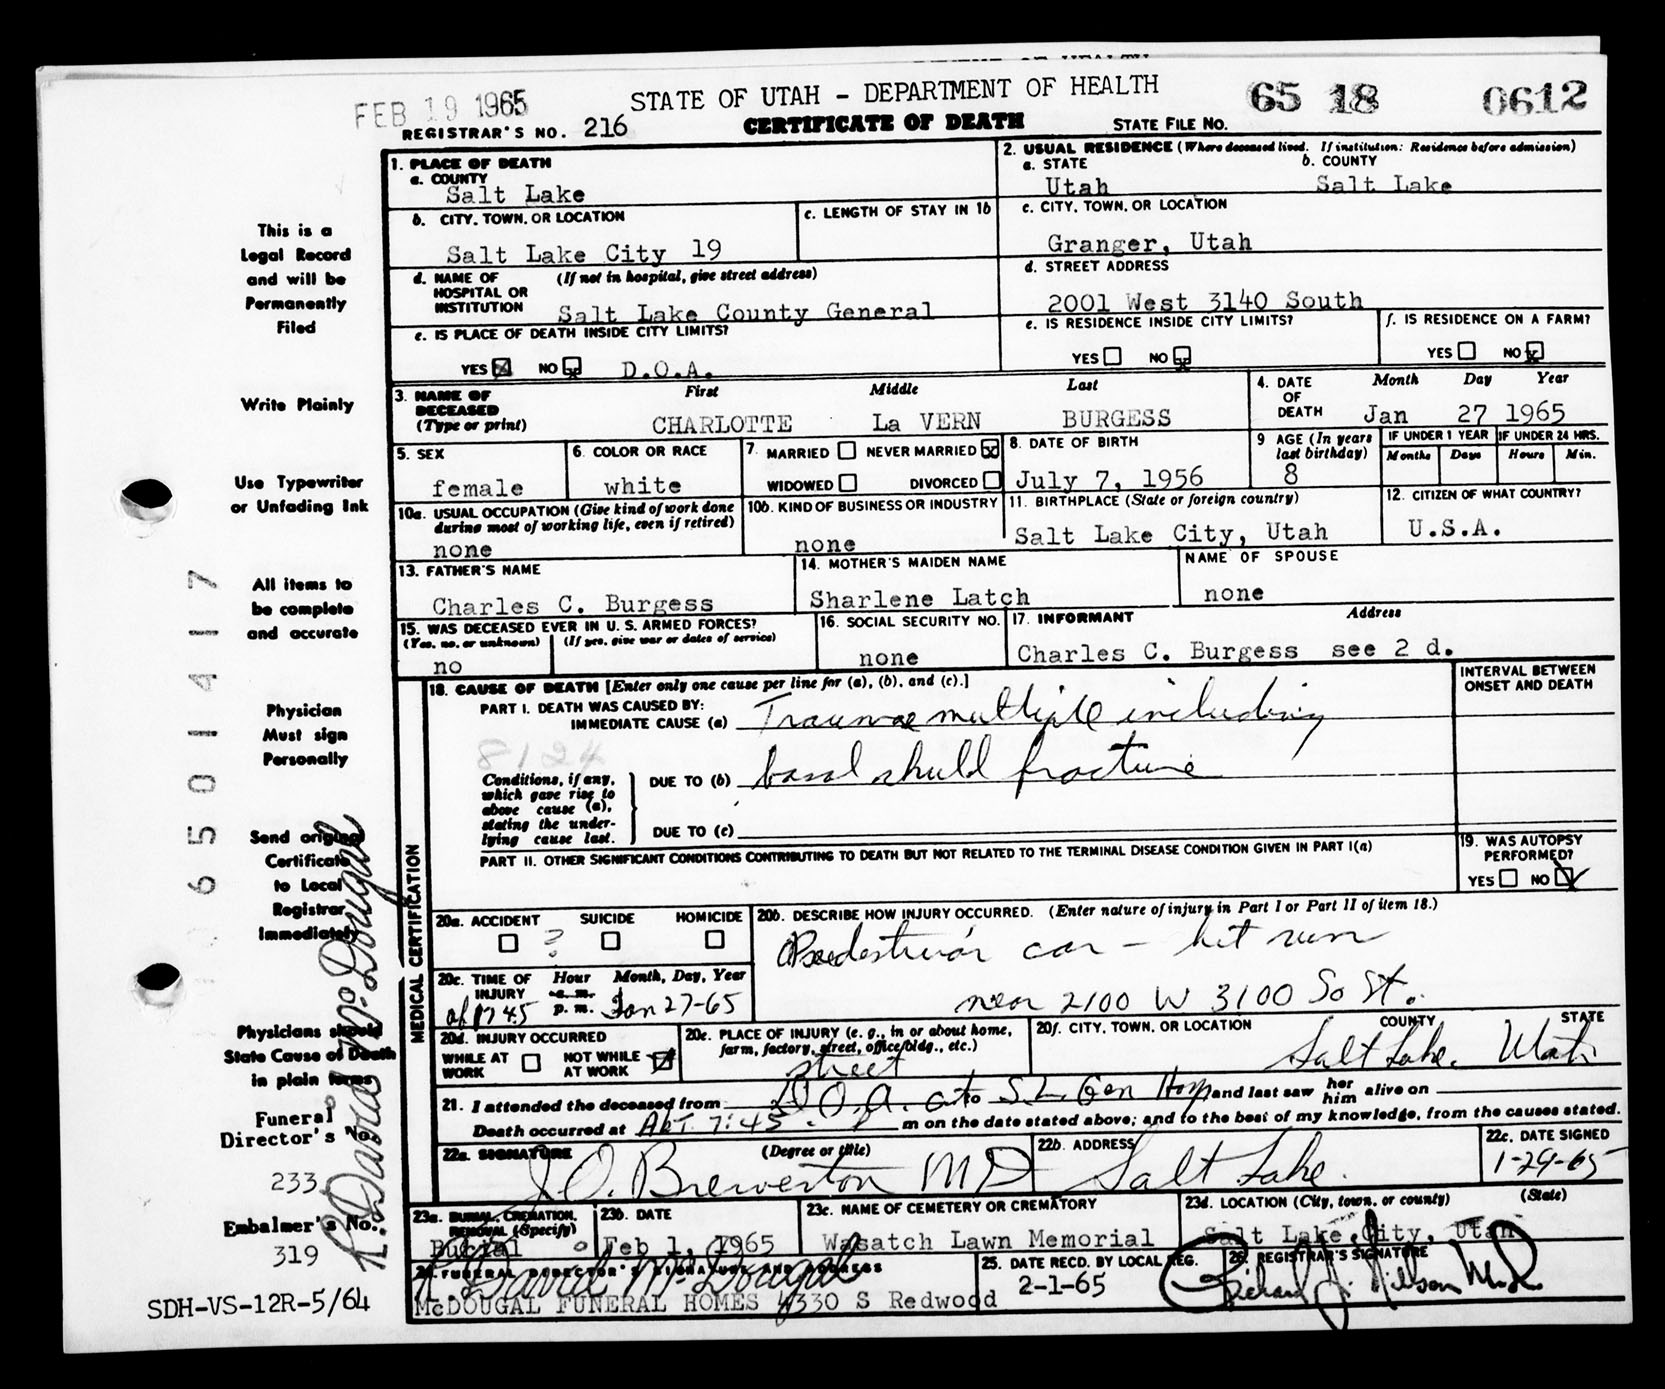 FEB 19 1965
STATE OF UTAH - DEPARTMENT OF HEALTH
65 18 0612
REGISTRAR'S NO. 216
CERTIFICATE OF DEATH
STATE FILE NO.
This is a
Legal Record
and will be
Permanently
Filed
Write Plainly
Use Typewriter
or Unfading Ink
All items to
be complete
and accurate
Physician
Must sign
Personally
Send original
Certificate
to Local
Registrar
Immediately
Physicians should
State Cause of Death
in plain terms
Funeral
Director's No.
233
Embalmer's No.
319
SDH-VS-12R-5/64
6501417
R. David McDougal
1. PLACE OF DEATH
a. COUNTY
Salt Lake
b. CITY, TOWN, OR LOCATION
Salt Lake City 19
c. LENGTH OF STAY IN 1b
d. NAME OF HOSPITAL OR INSTITUTION (If not in hospital, give street address)
Salt Lake County General
e. IS PLACE OF DEATH INSIDE CITY LIMITS?
YES NO D.O.A.
2. USUAL RESIDENCE (Where deceased lived. If institution: Residence before admission)
a. STATE
Utah
b. COUNTY
Salt Lake
c. CITY, TOWN, OR LOCATION
Granger, Utah
d. STREET ADDRESS
2001 West 3140 South
e. IS RESIDENCE INSIDE CITY LIMITS?
YES NO
f. IS RESIDENCE ON A FARM?
YES NO
3. NAME OF DECEASED (Type or print)
First Middle Last
CHARLOTTE La VERN BURGESS
4. DATE OF DEATH
Month Day Year
Jan 27 1965
5. SEX
female
6. COLOR OR RACE
white
7. MARRIED NEVER MARRIED
WIDOWED DIVORCED
8. DATE OF BIRTH
July 7, 1956
9 AGE (In years last birthday)
8
IF UNDER 1 YEAR
Months Days
IF UNDER 24 HRS.
Hours Min.
10a. USUAL OCCUPATION (Give kind of work done during most of working life, even if retired)
none
10b. KIND OF BUSINESS OR INDUSTRY
none
11. BIRTHPLACE (State or foreign country)
Salt Lake City, Utah
12. CITIZEN OF WHAT COUNTRY?
U.S.A.
13. FATHER'S NAME
Charles C. Burgess
14. MOTHER'S MAIDEN NAME
Sharlene Latch
NAME OF SPOUSE
none
15. WAS DECEASED EVER IN U. S. ARMED FORCES?
(Yes, no, or unknown) (If yes, give war or dates of service)
no
16. SOCIAL SECURITY NO.
none
17. INFORMANT Address
Charles C. Burgess see 2 d.
MEDICAL CERTIFICATION
18. CAUSE OF DEATH [Enter only one cause per line for (a), (b), and (c).]
INTERVAL BETWEEN ONSET AND DEATH
PART I. DEATH WAS CAUSED BY:
IMMEDIATE CAUSE (a) Traumae multiple including
8124
Conditions, if any, which gave rise to above cause (a), stating the underlying cause last.
DUE TO (b) basal skull fracture
DUE TO (c)
PART II. OTHER SIGNIFICANT CONDITIONS CONTRIBUTING TO DEATH BUT NOT RELATED TO THE TERMINAL DISEASE CONDITION GIVEN IN PART I(a)
19. WAS AUTOPSY PERFORMED?
YES NO
20a. ACCIDENT SUICIDE HOMICIDE
?
20b. DESCRIBE HOW INJURY OCCURRED. (Enter nature of injury in Part I or Part II of item 18.)
Pedestrian car - hit run
near 2100 W 3100 So St.
20c. TIME OF INJURY Hour Month, Day, Year
a.m.
p.m. 745 Jan 27-65
20d. INJURY OCCURRED
WHILE AT WORK NOT WHILE AT WORK
20e. PLACE OF INJURY (e. g., in or about home, farm, factory, street, office bldg., etc.)
street
20f. CITY, TOWN, OR LOCATION COUNTY STATE
Salt Lake. Utah
21. I attended the deceased from D.O.A. at to S.L. Gen Hosp and last saw her him alive on
Death occurred at Abt. 7:45 P m on the date stated above; and to the best of my knowledge, from the causes stated.
22a. SIGNATURE (Degree or title)
J. O. Brewerton MD
22b. ADDRESS
Salt Lake.
22c. DATE SIGNED
1-29-65
23a. BURIAL, CREMATION, REMOVAL (Specify)
Burial
23b. DATE
Feb 1, 1965
23c. NAME OF CEMETERY OR CREMATORY
Wasatch Lawn Memorial
23d. LOCATION (City, town, or county) (State)
Salt Lake City, Utah
24. FUNERAL DIRECTOR'S SIGNATURE AND ADDRESS
R. David McDougal
McDOUGAL FUNERAL HOMES 4330 S Redwood
25. DATE RECD. BY LOCAL REG.
2-1-65
26. REGISTRAR'S SIGNATURE
Richard J. Nelson MD